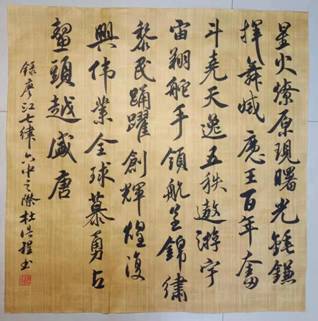 星火燎原現曙光鎚鐮
揮舞滅魔王百年奮
斗堯天逸五秩遨游宇
宙翔舵手領航呈錦繡
黎民踴躍創輝煌復
興伟業全球慕勇占
鰲頭越盛唐
錄廖江七律六中之際杜浩程书